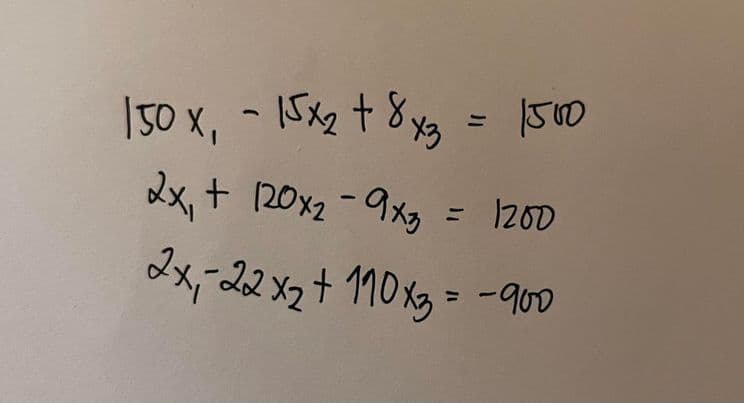 150x₁ - 15x₂ + 8x₃ = 1500
2x₁ + 120x₂ - 9x₃ = 1200
2x₁ - 22x₂ + 110x₃ = -900